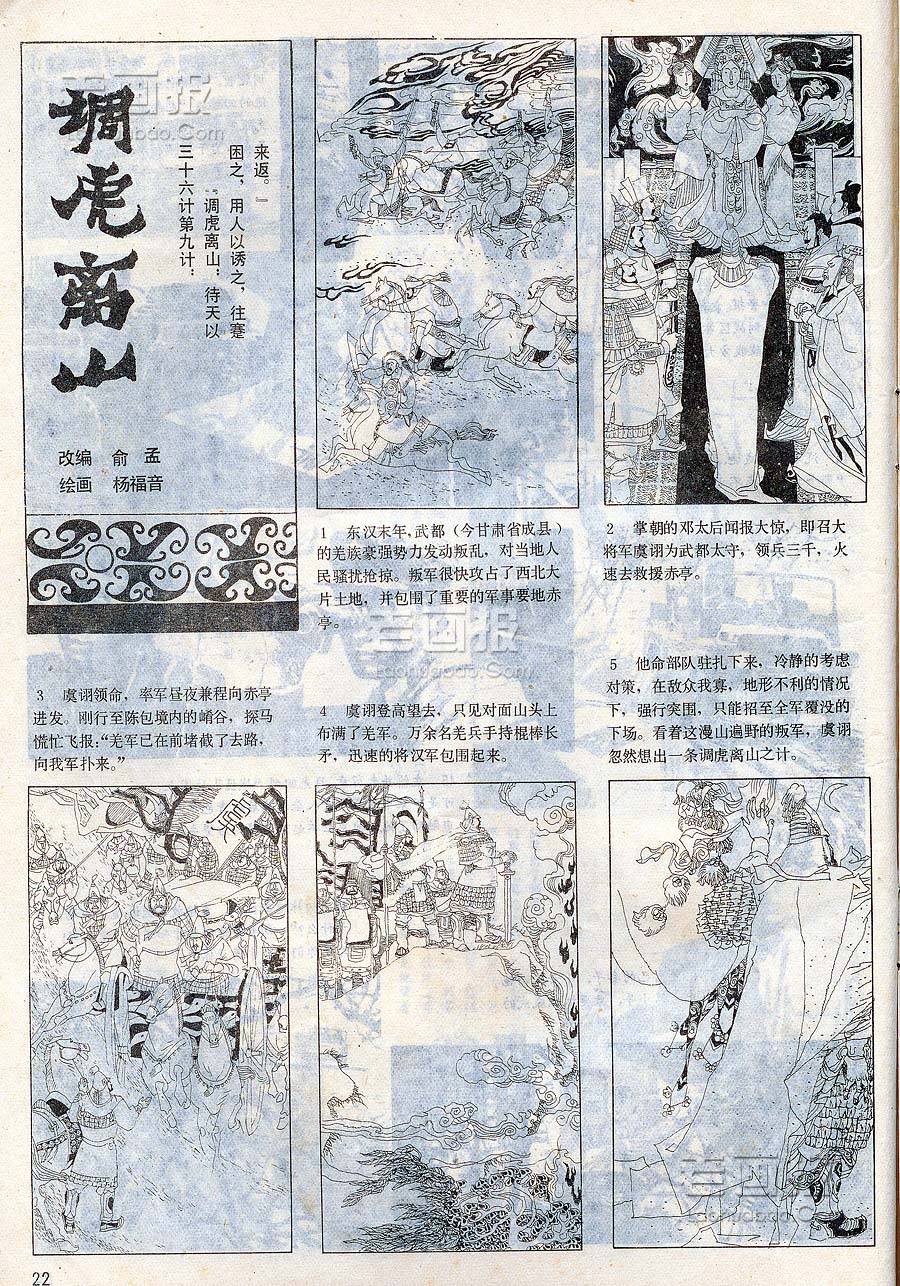 调虎离山
三十六计第九计：
“调虎离山：待天以
困之，用人以诱之，往蹇
来返。』
改编 俞孟
绘画 杨福音
1 东汉末年，武都（今甘肃省成县）
的羌族豪强势力发动叛乱，对当地人
民骚扰抢掠。叛军很快攻占了西北大
片土地，并包围了重要的军事要地赤
亭。
2 掌朝的邓太后闻报大惊，即召大
将军虞诩为武都太守，领兵三千，火
速去救援赤亭。
3 虞诩领命，率军昼夜兼程向赤亭
进发。刚行至陈包境内的崤谷，探马
慌忙飞报：“羌军已在前堵截了去路，
向我军扑来。”
4 虞诩登高望去，只见对面山头上
布满了羌军。万余名羌兵手持棍棒长
矛，迅速的将汉军包围起来。
5 他命部队驻扎下来，冷静的考虑
对策，在敌众我寡，地形不利的情况
下，强行突围，只能招至全军覆没的
下场。看着这漫山遍野的叛军，虞诩
忽然想出一条调虎离山之计。
虞
22
老画报
Laohuabao.Com